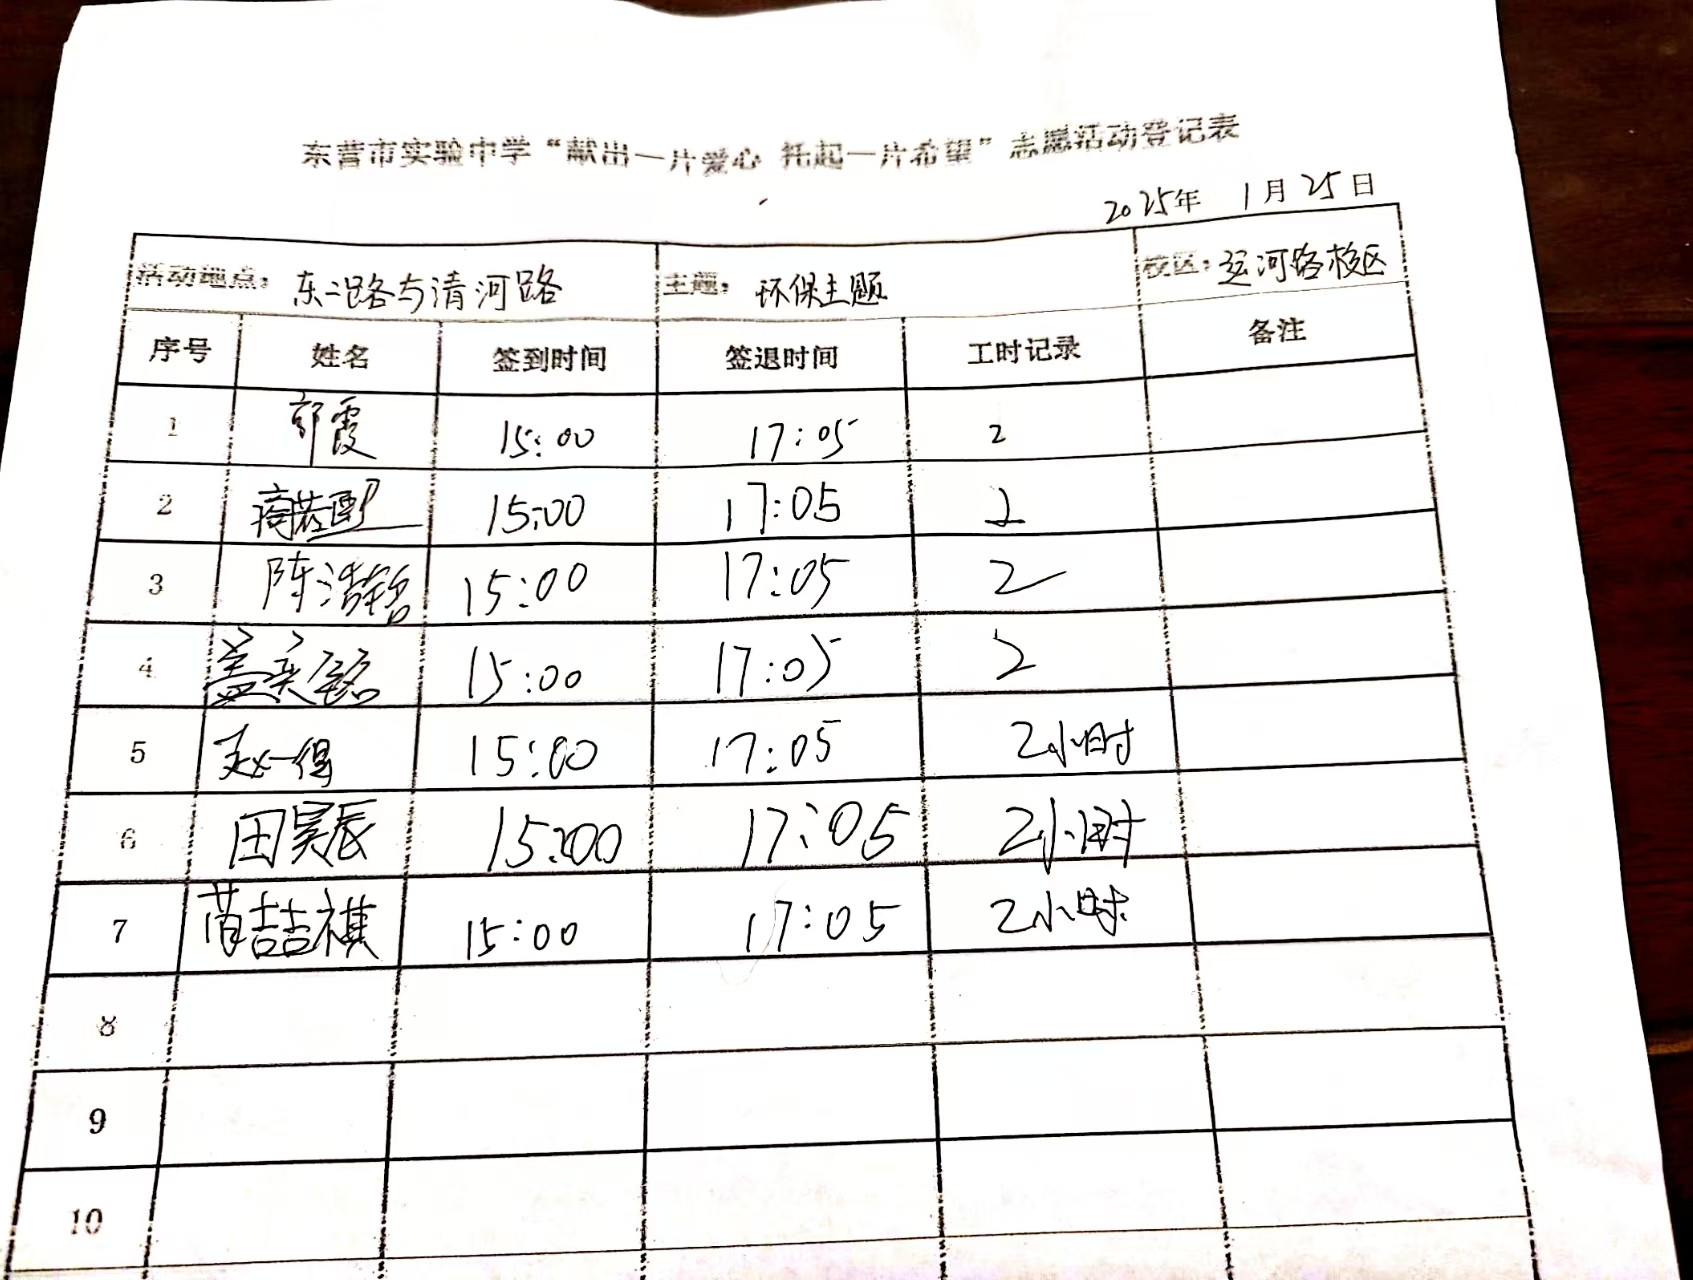 东营市实验中学“献出一片爱心 托起一片希望”志愿活动登记表
2025年 1月25日
活动地点: 东二路与清河路 主题: 环保主题 校区: 运河路校区
序号 姓名 签到时间 签退时间 工时记录 备注
1 郭霞 15:00 17:05 2
2 15:00 17:05 2
3 陈浩铭 15:00 17:05 2
4 盖奕铭 15:00 17:05 2
5 赵一得 15:00 17:05 2小时
6 田昊辰 15:00 17:05 2小时
7 苗喆祺 15:00 17:05 2小时
8
9
10